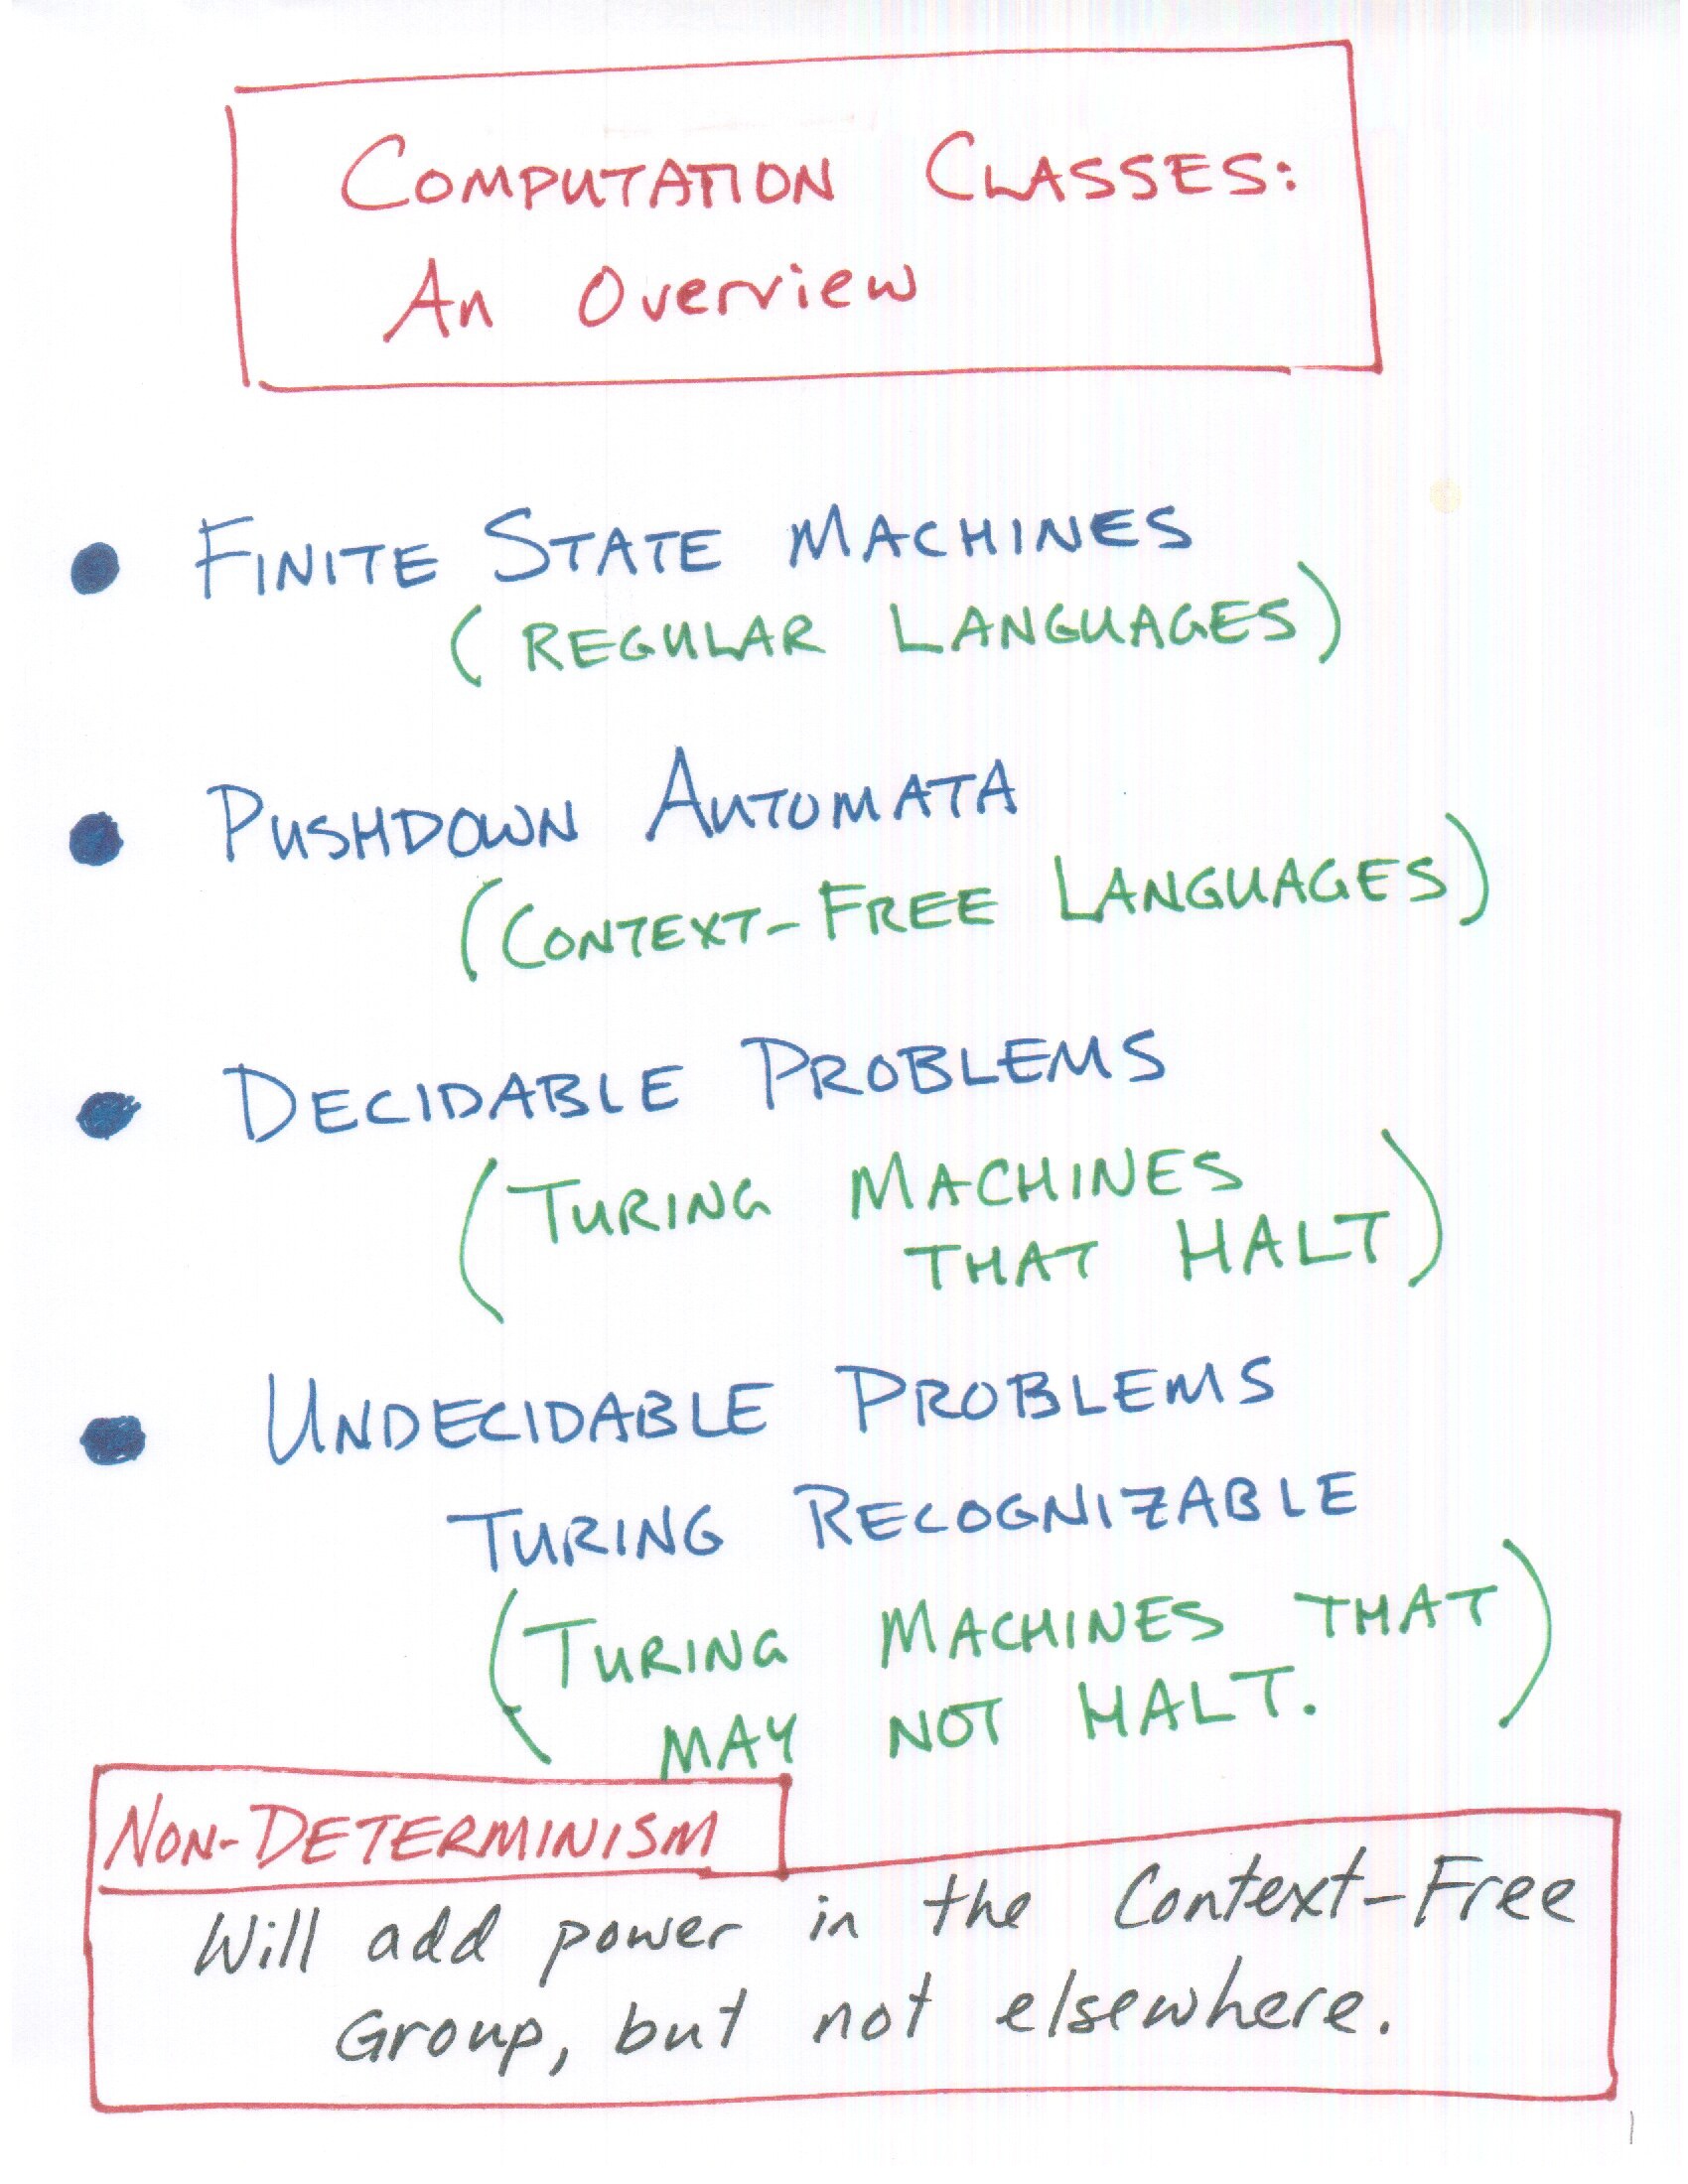 COMPUTATION CLASSES:
An Overview
• FINITE STATE MACHINES
(REGULAR LANGUAGES)
• PUSHDOWN AUTOMATA
(CONTEXT-FREE LANGUAGES)
• DECIDABLE PROBLEMS
(TURING MACHINES
THAT HALT)
• UNDECIDABLE PROBLEMS
TURING RECOGNIZABLE
(TURING MACHINES THAT
MAY NOT HALT.)
NON-DETERMINISM
Will add power in the Context-Free
Group, but not elsewhere.
1